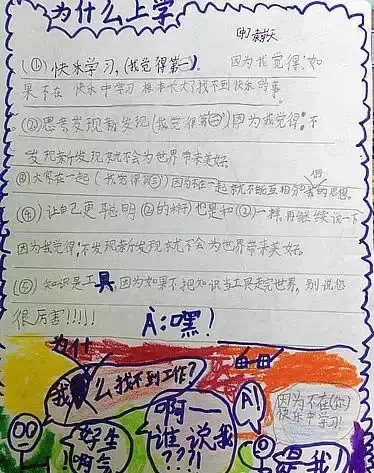 为什么上学
(1) 快乐学习，(我觉得第一)。因为我觉得：如
果不在 快乐中学习 根本长大了找不到快乐的事。
② 思考发现新发现 (我觉得第②) 因为我觉得：不
发现新发现就不会为世界带来美好。
③ 大家在一起 (我觉得第③) 因为不在一起就不能互相分享的思想。
④ 让自己更聪明 也是和②一样，再继续说一下
因为我觉得：不发现新发现就不会为世界带来美好。
⑤ 知识是工具 因为如果不把知识当工具走完世界，别说您
很厉害!!!!!
A：嘿！
为什
我 么找不到工作？
因为不在(你)
快乐中学习！
A！
啊一
谁说我
???!
好生
啊
是我